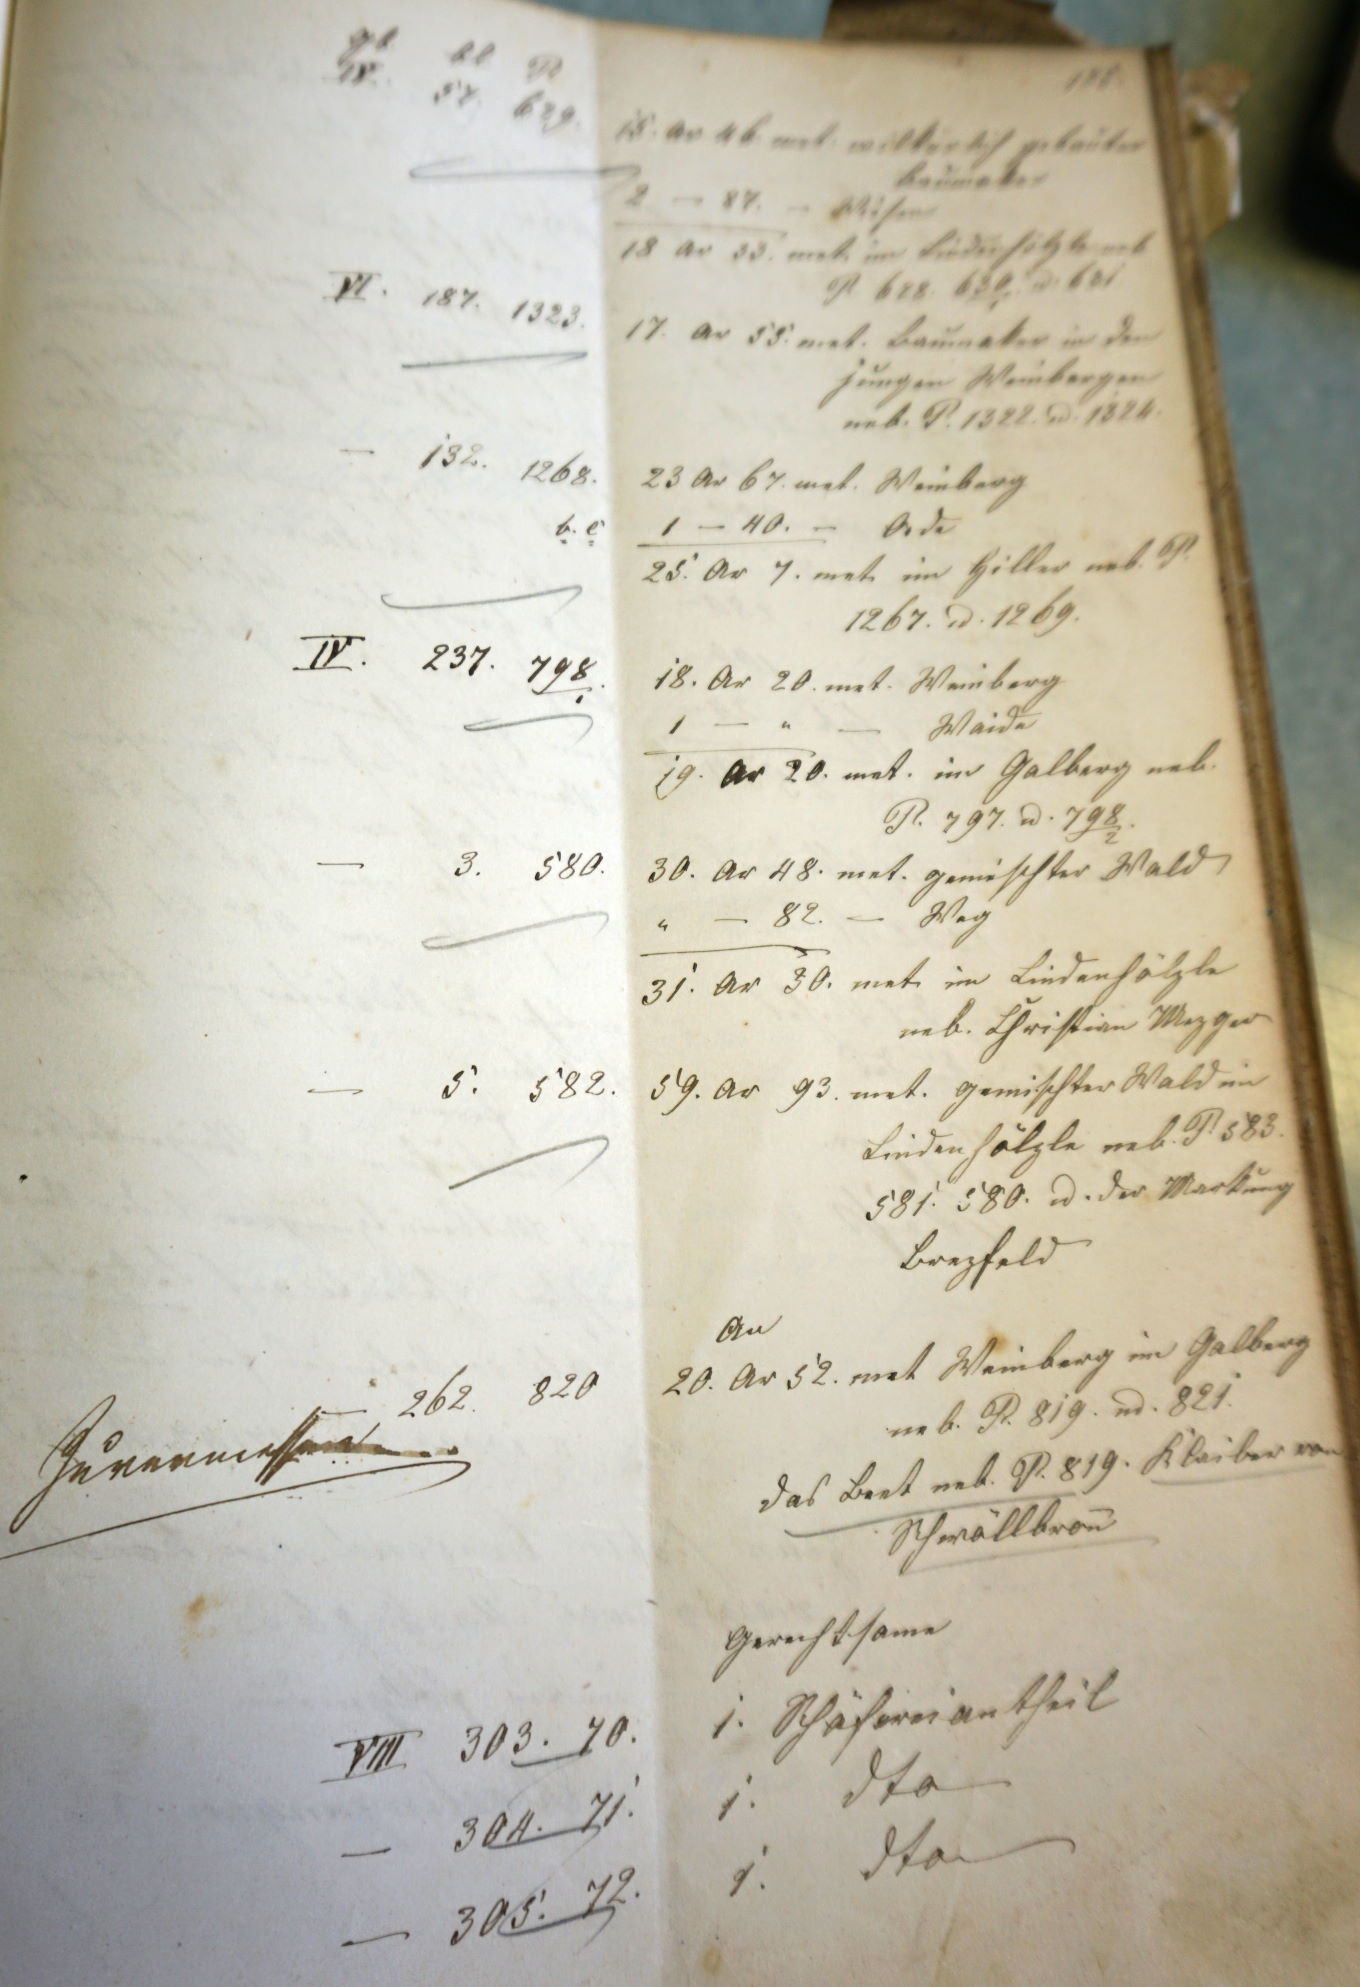 gb. bl P.
IV. 57. 629. 15. Ar 46 met. willkürlich gebauter
Baumaker
2 — 87. — Wiesen
18 Ar 33. met. im Lindenhölzle neb
P. 628. 630. u. 631
VI. 187. 1323. 17. Ar 55. met. Baumaker in den
jungen Weinbergen
neb. P. 1322. u. 1324.
— 132. 1268. 23 Ar 67. met. Weinberg
b. c 1 — 40. — Oede
25. Ar 7. met. im Hiller neb. P.
1267. u. 1269.
IV. 237. 798/1. 18. Ar 20. met. Weinberg
1 — " — Waide
19. Ar 20. met. im Galberg neb.
P. 797. u. 798/2.
— 3. 580. 30. Ar 48. met. gemischter Wald
" — 82. — Weg
31. Ar 30. met. im Lindenhölzle
neb. Christian Mezger
— 5. 582. 59. Ar 93. met. gemischter Wald im
Lindenhölzle neb. P. 583.
581. 580. u. der Markung
Brezfeld
An
— 262. 820 20. Ar 52. met Weinberg im Galberg
neb. P. 819. u. 821.
Zuvermessen
das Beet neb. P. 819. Klaiber von
Schwöllbron̄
Gerechtsame
VIII 303. 70. 1. Schäfereiantheil
— 304. 71. 1. dto
— 305. 72. 1. dto